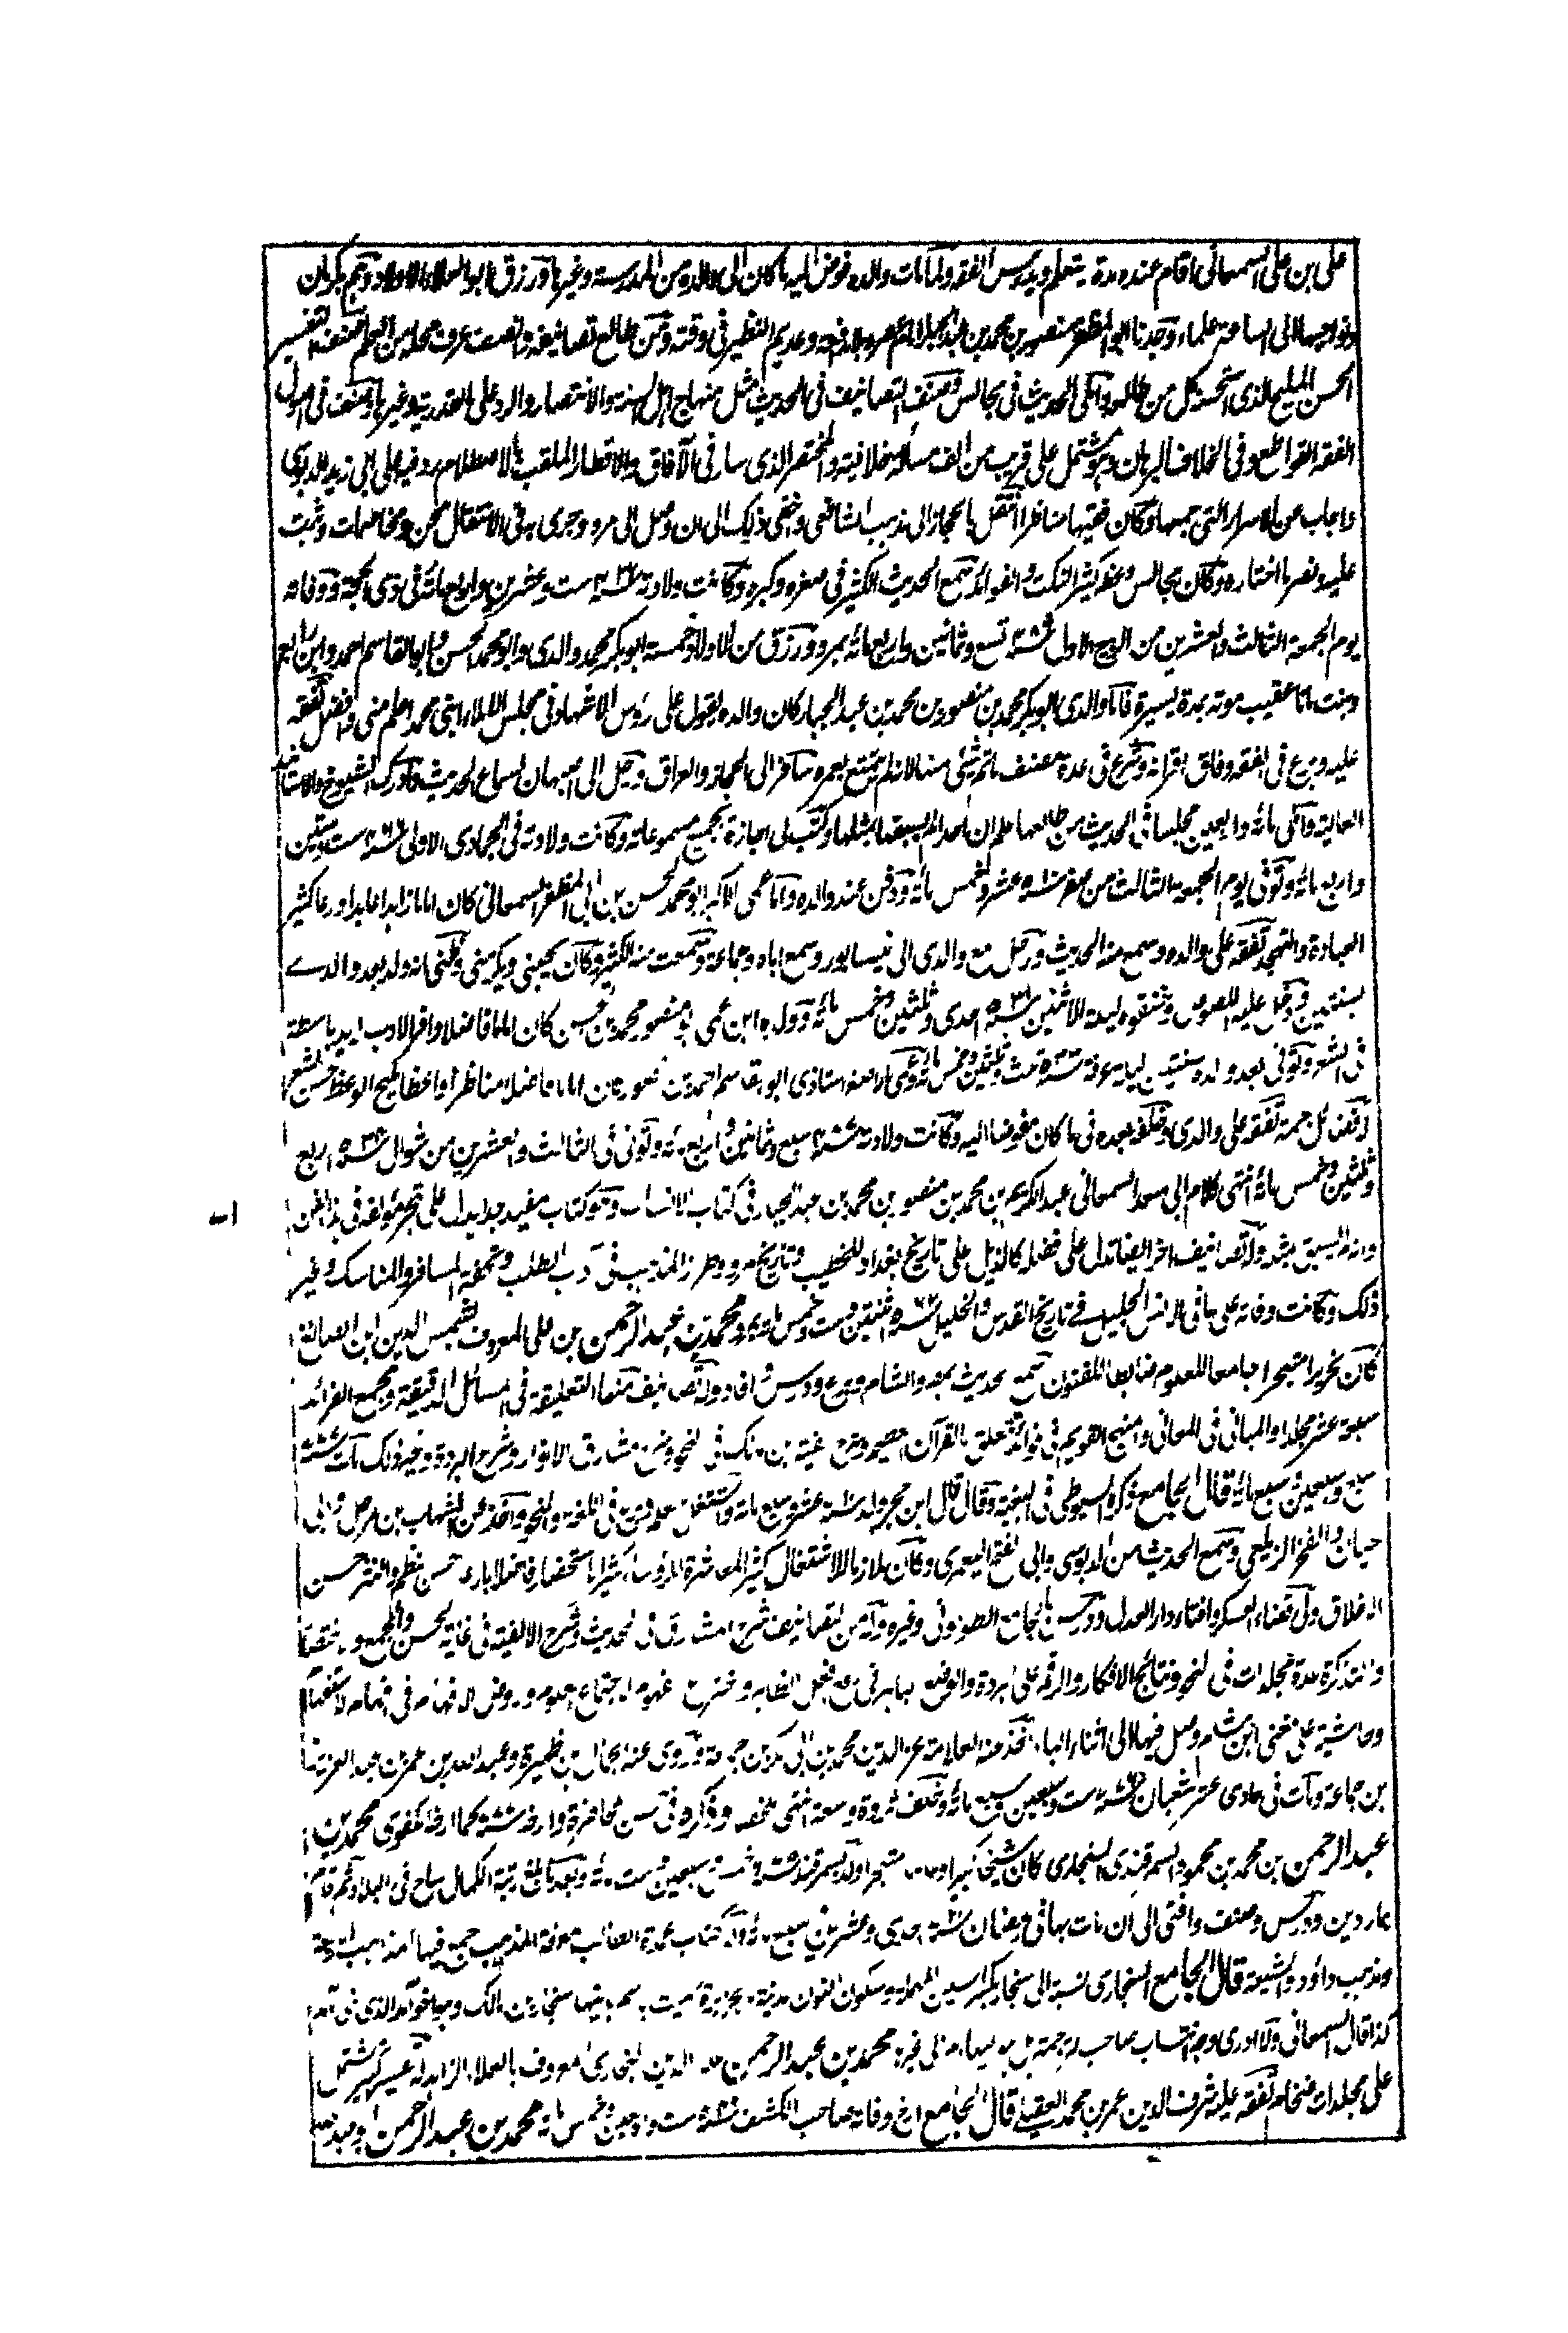 على ابن على السمعانى اقام عنده مدة يتعلم ويدرس الفقه ولما مات والده فوض اليه ما كان الى والده من المدرسة وغيرها ورزق ابو العلاء الاولاد وهم بكرمان
ونواحيها الى الساعة علماء وجدنا ابو المظفر منصور بن محمد بن عبد الجبار امام عصره بلا مدافعة وعديم النظير فى وقته ومن طالع تصانيفه وانصف عرف محله من العلم صنف التفسير
الحسن المليح الذى استحسنه كل من طالعه واملى الحديث فى مجالس وصنف التصانيف فى الحديث مثل منهاج اهل السنة والانتصار والرد على القدرية وغيرها وصنف فى اصول
الفقه القواطع وفى الخلاف البرهان وهو مشتمل على قريب من الف مسألة خلافية والمختصر الذى سار فى الآفاق والاقطار الملقب بالاصطلام رد فيه على ابى زيد الدبوسى
واجاب عن الاسرار التى جمعها وكان فقيها مناظرا انتقل بالحجاز الى مذهب الشافعى واخفى ذلك الى ان وصل الى مرو وجرى له فى الانتقال محن ومخاصمات وثبت
عليه ونصر ما اختاره وكان مجالس وعظه كثير النكت والفوائد سمع الحديث الكثير فى صغره وكبره وكانت ولادته سنة ست وعشرين واربع مائة فى ذى الحجة ووفاته
يوم الجمعة الثالث والعشرين من الربيع الاول سنة تسع وثمانين واربع مائة بمرو ورزق من الاولاد خمسة ابو بكر محمد والدى وابو محمد الحسن وابو القاسم احمد وابن رابع
وبنت ماتا عقيب موته بمدة يسيرة فاما والدى ابو بكر محمد بن منصور بن محمد بن عبد الجبار كان والده يقول على رؤس الاشهاد فى مجلس الاملاء ابنى محمد اعلم منى وافضل تفقه
عليه وبرع فى الفقه وفاق اقرانه وشرع فى عدة مصنف ما تم شئ منها لانه لم يتمتع بعمره سافر الى الحجاز والعراق ورحل الى اصبهان لسماع الحديث وادرك الشيوخ والاسانيد
العالية واملى مائة واربعين مجلسا فى الحديث من طالعها علم ان احدا لم يسبقه الى مثلها وكتب لى اجازة بجميع مسموعاته وكانت ولادته فى الجمادى الاولى سنة ست وستين
واربع مائة وتوفى يوم الجمعة الثالث من صفر سنة عشر وخمس مائة ودفن عند والده واما عمى الاكبر ابو محمد الحسن بن ابى المظفر السمعانى كان اماما زاهدا عابدا ورعا كثير
العبادة والتهجد تفقه على والده وسمع منه الحديث ورحل مع والدى الى نيسابور وسمع اباه وجماعة وسمعت منه الكثير وكان يحبنى ويكرمنى ولظنى انه ولد بعد والدى
بسنتين ودخل عليه اللصوص وخنقوه ليلة الاثنين سنة احدى وثلثين وخمس مائة وولده ابن عمى ابو منصور محمد بن حسن كان اماما فاضلا وافر الادب له يد باسطة
فى الشعر وتوفى بعد والده بسنتين ليلة عرفة سنة ثلث وثلثين وخمس مائة وعمى الاصغر استاذى ابو القاسم احمد بن منصور كان اماما فاضلا مناظرا واعظا مليح الوعظ حسن الشعر
تفقه على والدى وخلفه بعده فى ما كان مفوضا اليه وكانت ولادته سنة سبع وثمانين واربع مائة وتوفى فى الثالث والعشرين من شوال سنة اربع
وثلثين وخمس مائة انتهى كلام ابى سعد السمعانى عبد الكريم بن محمد بن منصور بن محمد بن عبد الجبار فى كتاب الانساب وهو كتاب مفيد جدا يدل على تبحر مؤلفه فى هذا الفن
وانه لم يسبق بمثله وله تصانيف اخر ايضا تدل على فضله كالذيل على تاريخ بغداد للخطيب وتاريخ مرو وطراز المذهب فى آداب الطلب وتحفة المسافر والمناسك وغير
ذلك وكانت وفاته على ما فى الانس الجليل فى تاريخ القدس والخليل سنة اثنتين وست وخمس مائة بمرو محمد بن عبد الرحمن بن على المعروف بشمس الدين ابن الصائغ
كان نحريرا متبحرا جامعا للعلوم ضابطا للفنون سمع الحديث بمصر والشام وبرع ودرس وافاد وله تصانيف منها التعليقة فى المسائل الدقيقة ومجمع الفرائد
سبعة عشر مجلدا والمبانى فى المعانى والمنهج القويم فى فوائد تتعلق بالقرآن العظيم وشرح الفية ابن مالك فى النحو وشرح مشارق الانوار وشرح البردة وغير ذلك مات سنة
سبع وسبعين وسبع مائة قال الجامع ذكره السيوطى فى البغية وقال قال ابن حجر ولد سنة عشر وسبع مائة واشتغل بالعلم وبرع فى اللغة والنحو واخذ عن الشهاب بن المرحل وابى
حيان والفخر الزيلعى وسمع الحديث من الدبوسى وابى الفتح اليعمرى وكان ملازما للاشتغال كثير المعاشرة للرؤساء كثير الاستحضار فاضلا بارعا حسن النظم والنثر حسن
الاخلاق ولى قضاء العسكر وافتاء دار العدل ودرس بالجامع الطولونى وغيره وله من التصانيف شرح المشارق فى الحديث وشرح الالفية فى غاية الحسن والجمع والاختصار
والتذكرة عدة مجلدات فى النحو ونتائج الافكار والرقم على البردة والوضع الباهر فى رفع افعل الظاهر واختراع الفهوم لاجتماع العلوم وروض الافهام فى اقسام الاستفهام
وحاشية على مغنى ابن هشام وصل فيها الى اثناء الباء اخذ عنه العلامة عز الدين محمد بن ابى بكر بن جماعة وروى عنه الجمال بن ظهيرة وعبد الله بن عمر بن عبد العزيز
بن جماعة ومات فى حادى عشر شعبان سنة ست وسبعين وسبع مائة وخلف ثروة واسعة انتهى ملخصه وذكره فى حسن المحاضرة وارخه سنة كما ارخه الكفوى محمد بن
عبد الرحمن بن محمد بن محمود السمرقندى السنجارى كان شيخا كبيرا متبحرا ولد بسمرقند سنة خمس وسبعين وست مائة وبعد ما بلغ رتبة الكمال ساح فى البلاد ثم قام
ماردين ودرس وصنف وافتى الى ان مات بها فى رمضان سنة احدى وعشرين وسبع مائة وله كتاب عمدة الطالب لمعرفة المذاهب جمع فيها المذاهب الاربعة
ومذهب داؤد والشيعة قال الجامع السنجارى نسبة الى سنجار بكسر السين المهملة وسكون النون مدينة بجزيرة سميت باسم بانيها سنجار بن مالك وهو اخو آمد الذى بنى آمد
كذا قال السمعانى ولا ادرى وجه انتساب صاحب الترجمة هل هو اليها ام الى غيره محمد بن عبد الرحمن علاء الدين البخارى المعروف بالعلاء الزاهد له تفسير كبير مشتمل
على مجلدات ضخام تفقه عليه شرف الدين عمر بن محمد العقيلى قال الجامع ارخ وفاته صاحب الكشف سنة ست واربعين وخمس مائة محمد بن عبد الرحمن ابو عبد الله